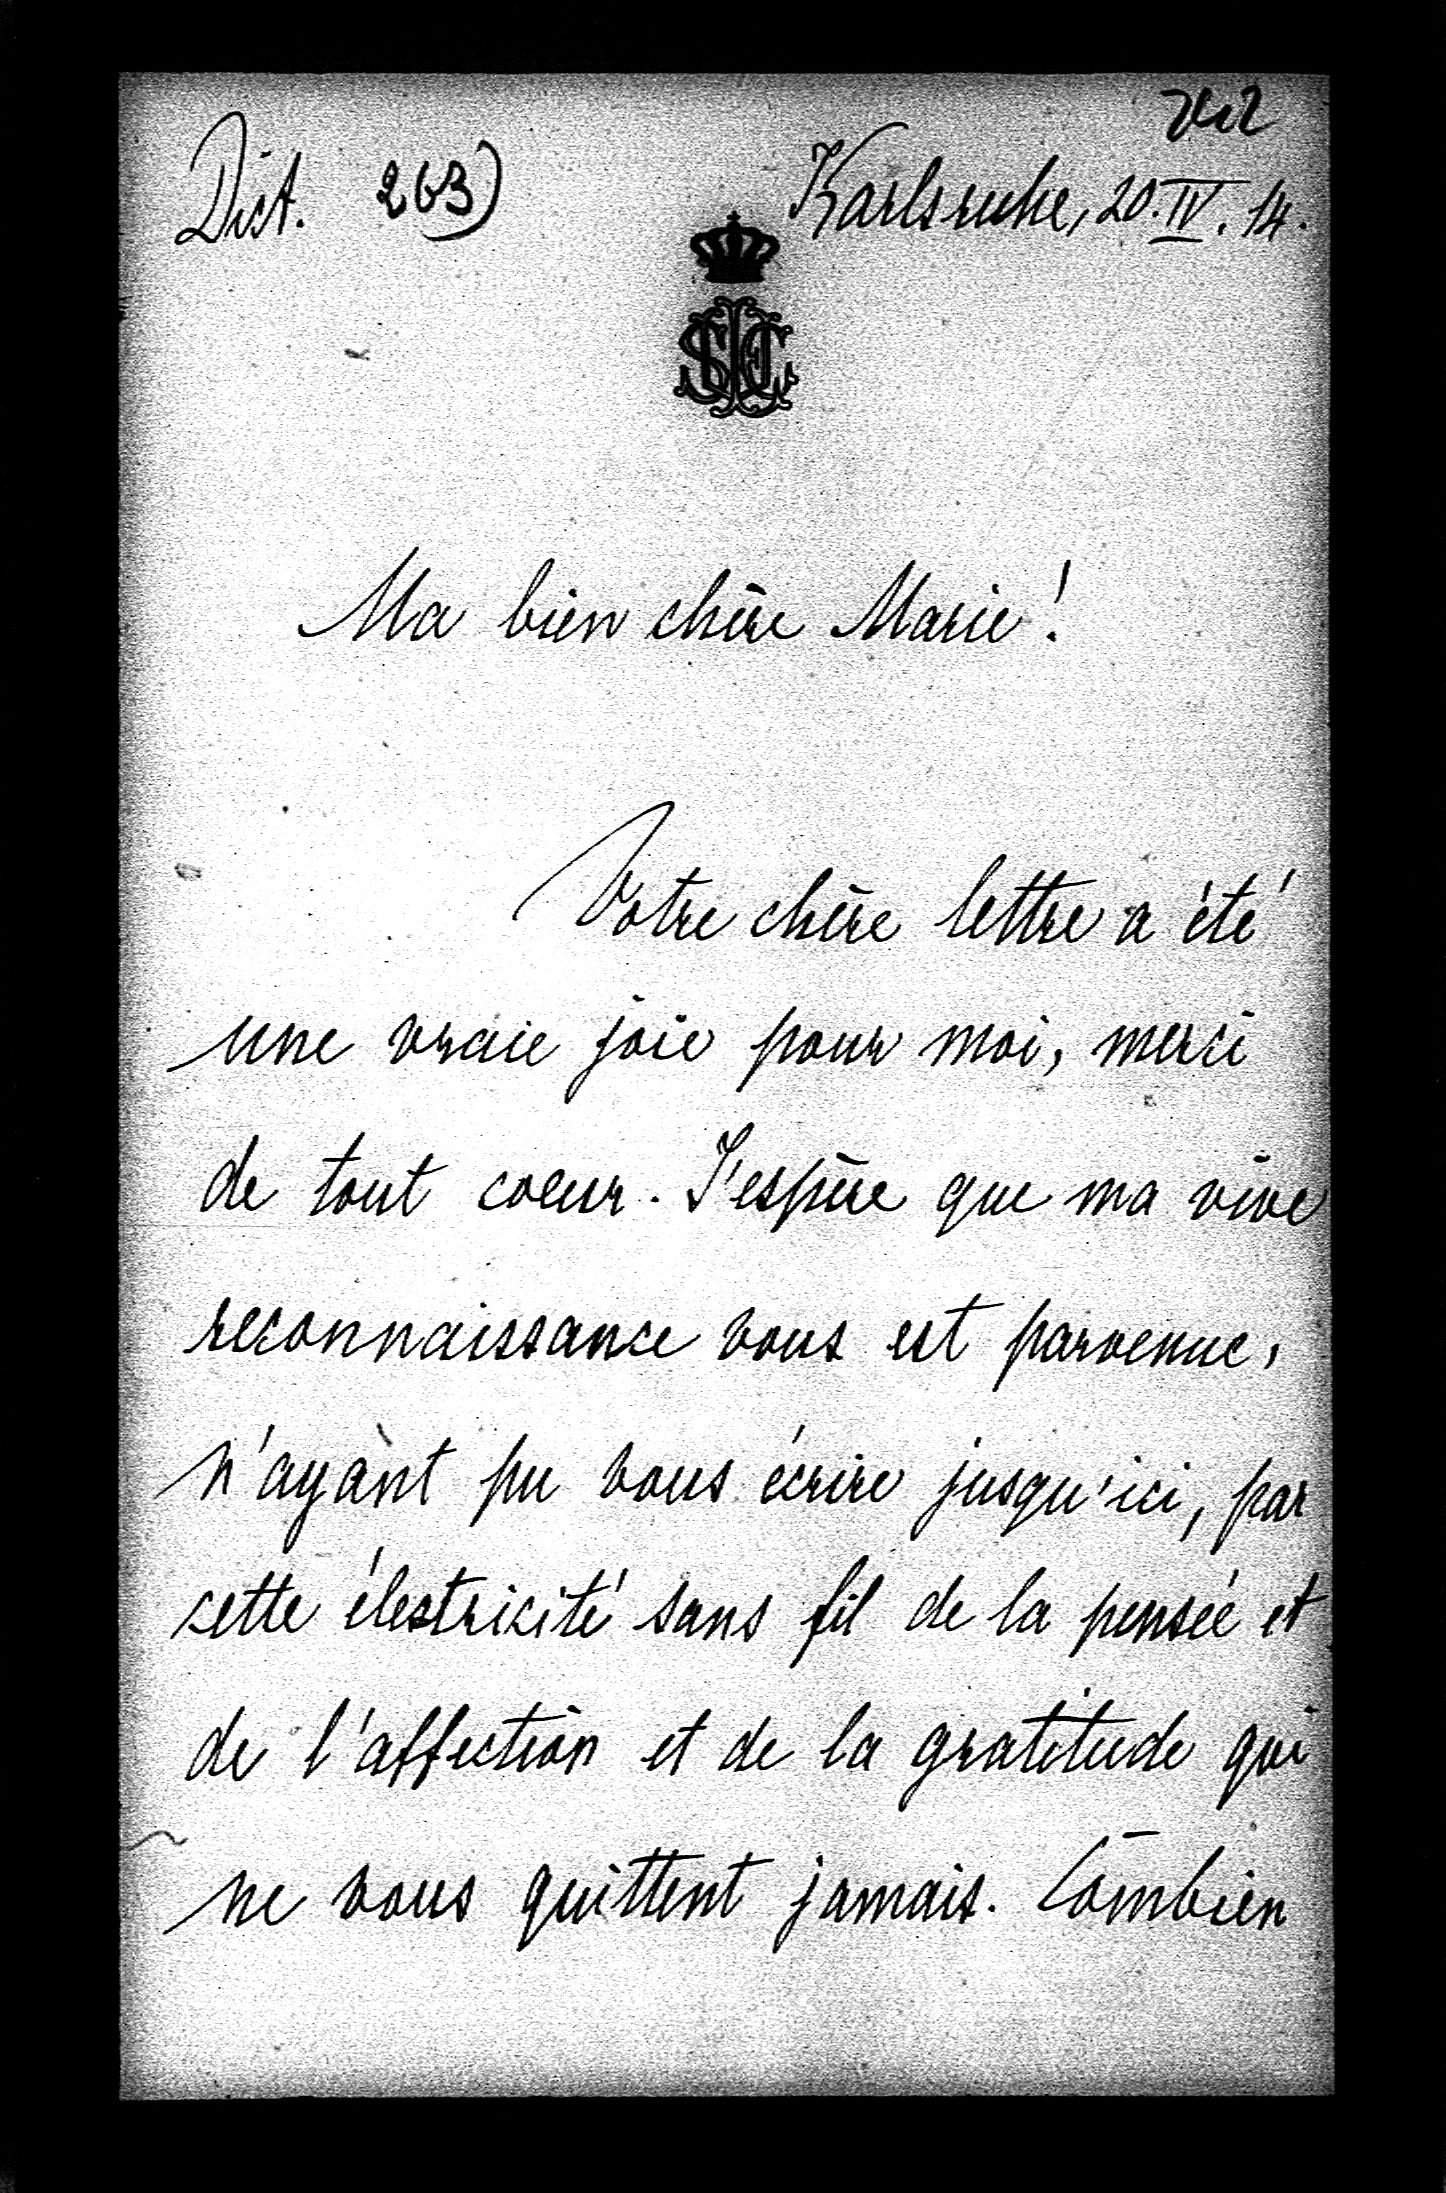 Dict. 263) Karlsruhe, 20. IV. 14.
Ma bien chère Marie!
Votre chère lettre a été
une vraie joie pour moi, merci
de tout coeur. J'espère que ma vive
reconnaissance vous est parvenue,
n'ayant pu vous écrire jusqu'ici, par
cette électricité sans fil de la pensée et
de l'affection et de la gratitude qui
ne vous quittent jamais. Combien